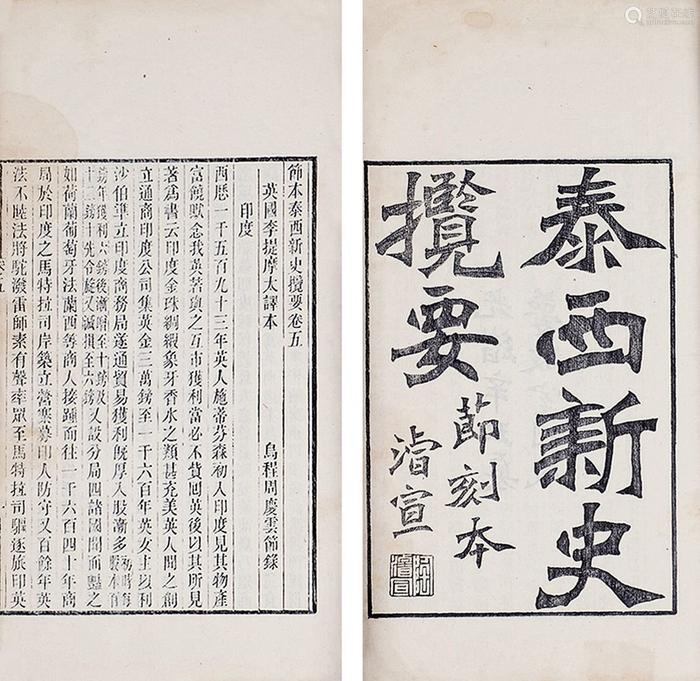 泰西新史
攬要
節刻本
濬宣
節本泰西新史攬要卷五
英國李提摩太譯本 烏程周慶雲節錄
印度
西歷一千五百九十三年英人施蒂芬森初入印度見其物產
富饒歎念我英若與之互市獲利當必不貲囘英後以其所見
著為書云印度金珠綢緞象牙香水之類甚充美英人聞之創
立通商印度公司集英金三萬鎊至一千六百年英女主以利
沙伯準立印度商務局遂通貿易獲利旣厚入股漸多
鎊年獲利六鎊後漸增至十鎊及
十二鎊十先令旋又減損至六鎊又設分局四諸國聞而豔之
如荷蘭葡萄牙法蘭西等商人接踵而往一千六百四十年商
局於印度之馬特拉司岸築立營寨募印人防守又百餘年英
法不睦法將駝潑雷師素有聲率眾至馬特拉司驅逐旅印英